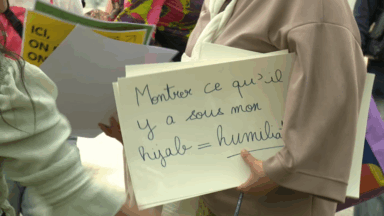 ICI,
ON
Montrer ce qu'il
y a sous mon
hyab = humilié